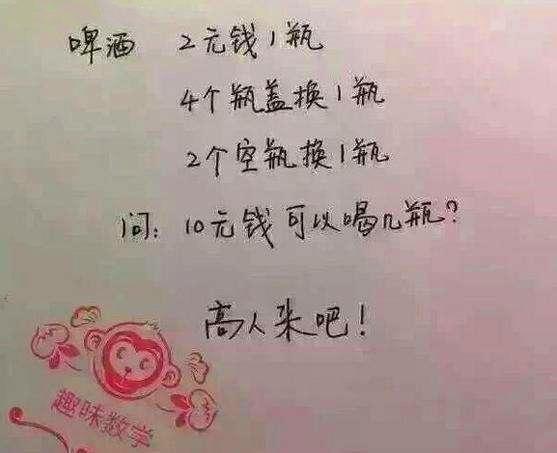 啤酒 2元钱1瓶
4个瓶盖换1瓶
2个空瓶换1瓶
问：10元钱可以喝几瓶？
高人来吧！
趣味数学